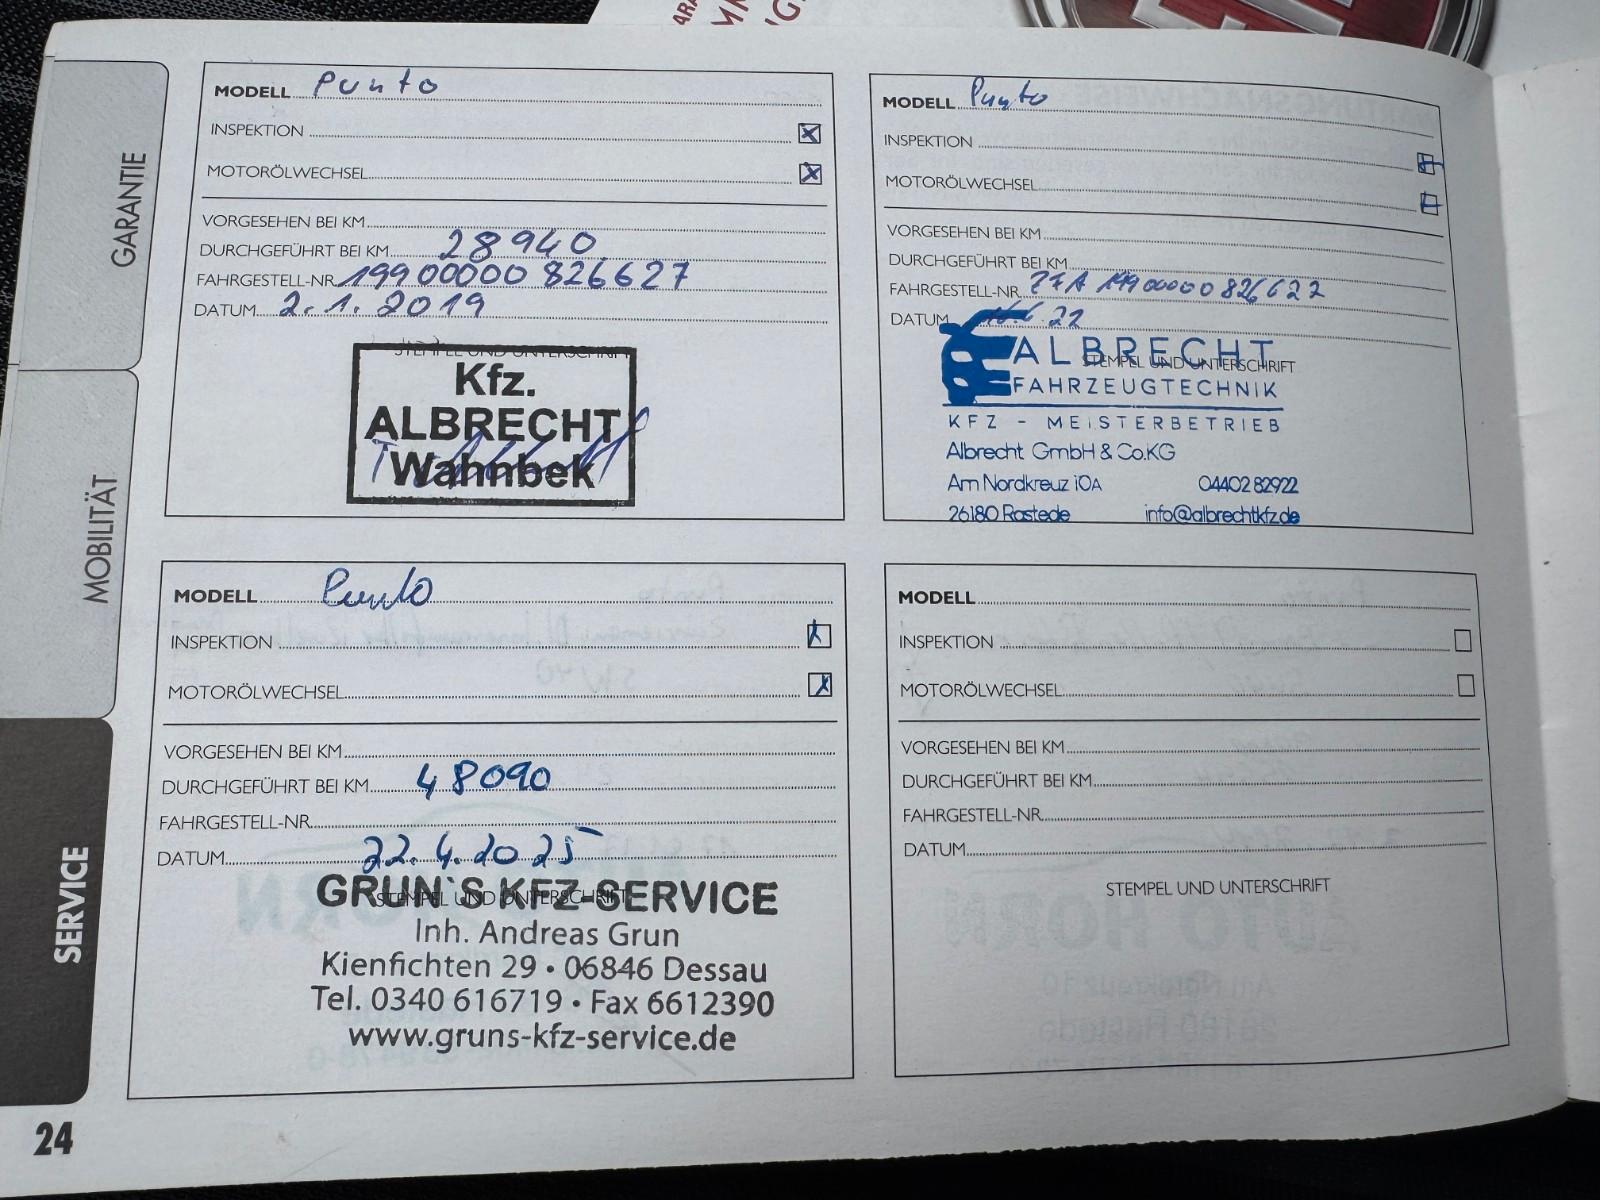 GARANTIE
MOBILITÄT
SERVICE
MODELL Punto
INSPEKTION
MOTORÖLWECHSEL
VORGESEHEN BEI KM
DURCHGEFÜHRT BEI KM 28940
FAHRGESTELL-NR. 19900000826627
DATUM 2.1.2019
STEMPEL UND UNTERSCHRIFT
Kfz.
ALBRECHT
Wahnbek
MODELL Punto
INSPEKTION
MOTORÖLWECHSEL
VORGESEHEN BEI KM
DURCHGEFÜHRT BEI KM
FAHRGESTELL-NR. 19900000826627
DATUM 22
STEMPEL UND UNTERSCHRIFT
ALBRECHT
FAHRZEUGTECHNIK
KFZ - MEISTERBETRIEB
Albrecht GmbH & Co.KG
Am Nordkreuz 10A 04402 82922
26180 Rastede info@albrechtkfz.de
MODELL Punto
INSPEKTION
MOTORÖLWECHSEL
VORGESEHEN BEI KM
DURCHGEFÜHRT BEI KM 48090
FAHRGESTELL-NR.
DATUM 22.4.2025
STEMPEL UND UNTERSCHRIFT
GRUN`S KFZ-SERVICE
Inh. Andreas Grun
Kienfichten 29 • 06846 Dessau
Tel. 0340 616719 • Fax 6612390
www.gruns-kfz-service.de
MODELL
INSPEKTION
MOTORÖLWECHSEL
VORGESEHEN BEI KM
DURCHGEFÜHRT BEI KM
FAHRGESTELL-NR.
DATUM
STEMPEL UND UNTERSCHRIFT
24